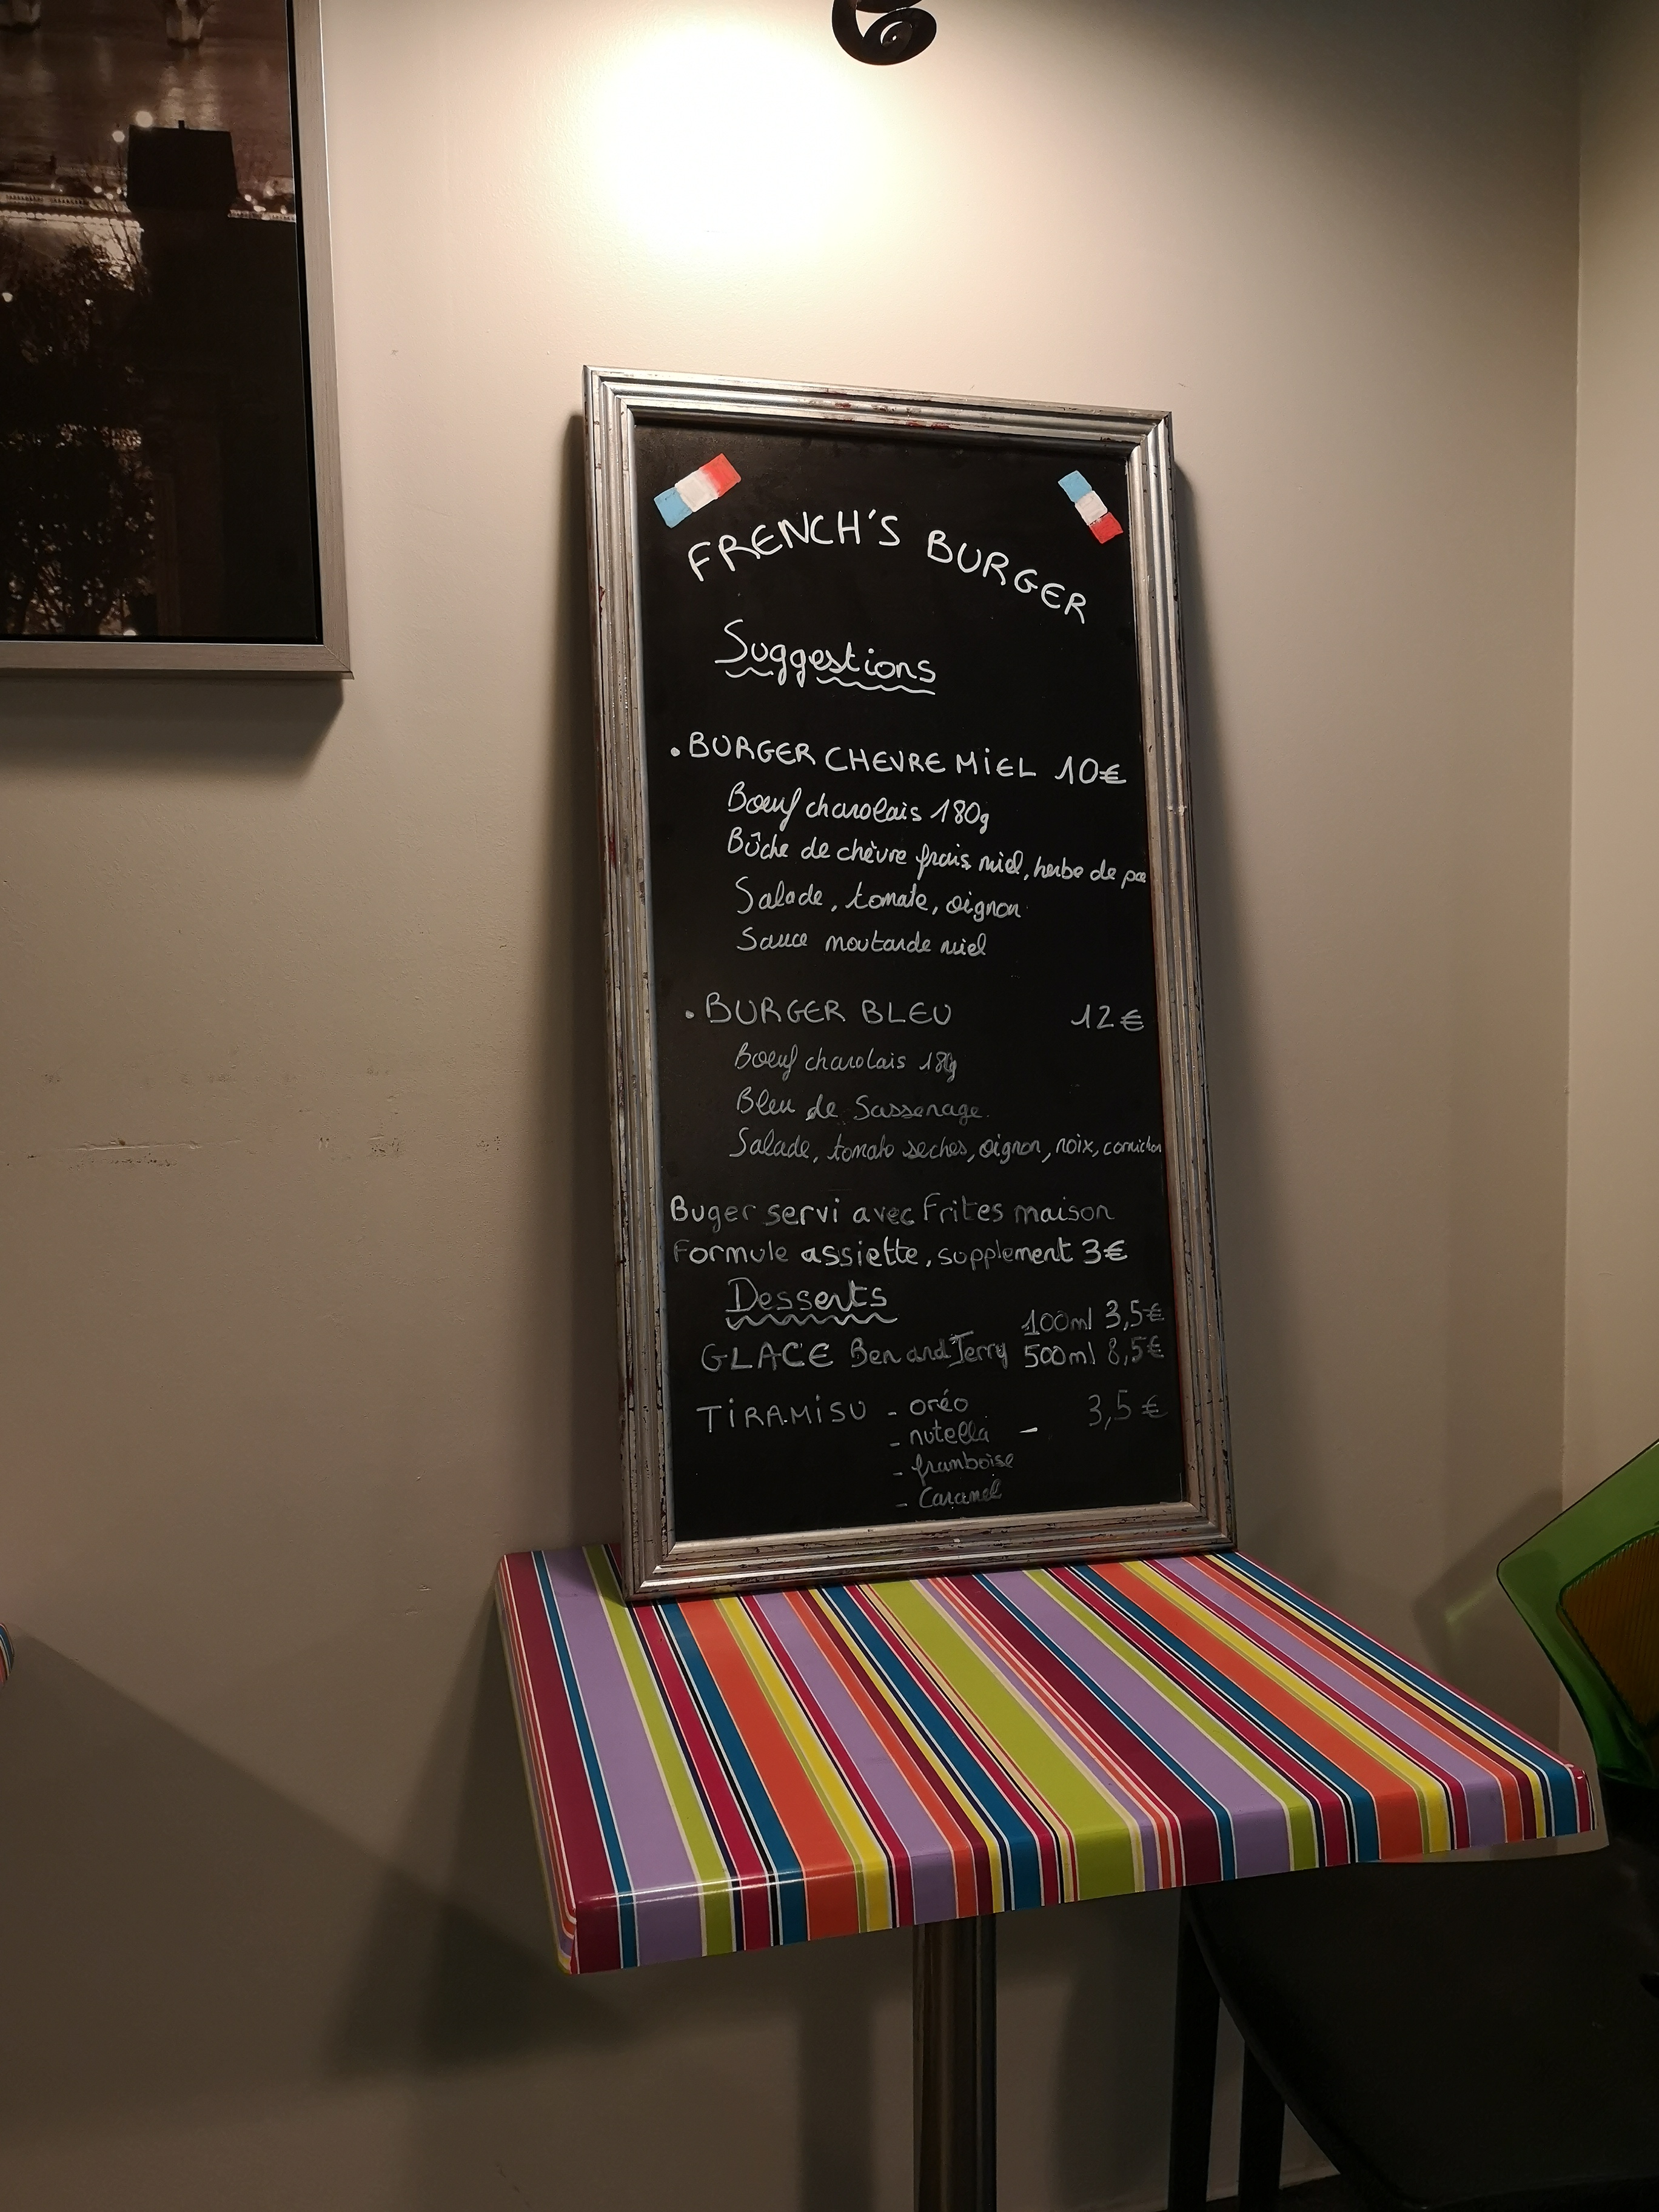 FRENCH'S BURGER
Suggestions
. BURGER CHEVRE MIEL 10€
Bœuf charolais 180g
Bûche de chèvre frais miel, herbe de
Salade, tomate, oignon
Sauce moutarde miel
. BURGER BLEU 12€
Bœuf charolais 180g
Bleu de Sassenage.
Salade, tomate seches, oignon, noix, cornichon
Buger servi avec Frites maison
Formule assiette, supplement 3€
Desserts
100ml 3,5€
GLACE Ben and Jerry 500ml 8,5€
TIRAMISU - oréo 3,5€
- nutella -
- framboise
- Caramel